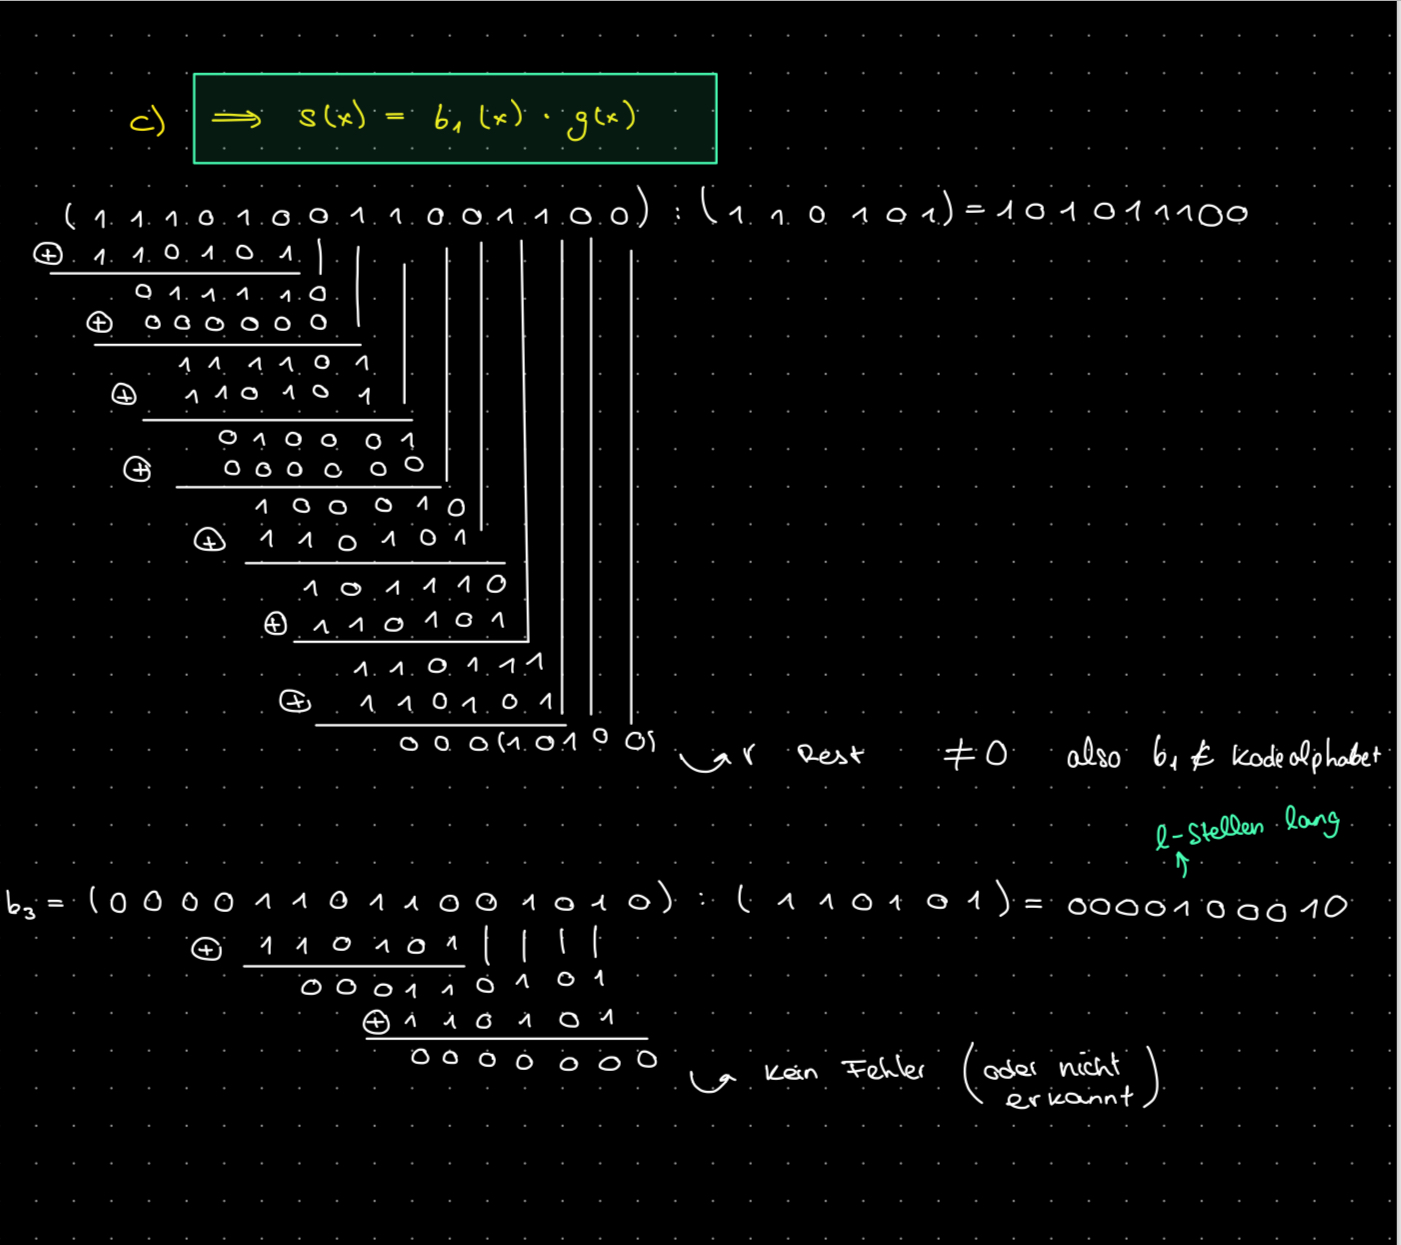 c) ⟹ s(x) = b₁(x) · g(x)
(1 1 1 0 1 0 0 1 1 0 0 1 1 0 0) : (1 1 0 1 0 1) = 1 0 1 0 1 1 1 0 0
⊕ 1 1 0 1 0 1
0 1 1 1 1 0
⊕ 0 0 0 0 0 0
1 1 1 1 0 1
⊕ 1 1 0 1 0 1
0 1 0 0 0 1
⊕ 0 0 0 0 0 0
1 0 0 0 1 0
⊕ 1 1 0 1 0 1
1 0 1 1 1 0
⊕ 1 1 0 1 0 1
1 1 0 1 1 1
⊕ 1 1 0 1 0 1
0 0 0 (1 0 1 0 0) r Rest ≠ 0 also b₁ ∉ Kodealphabet
l-Stellen lang
b₃ = (0 0 0 0 1 1 0 1 1 0 0 1 0 1 0) : (1 1 0 1 0 1) = 0 0 0 0 1 0 0 0 1 0
⊕ 1 1 0 1 0 1
0 0 0 1 1 0 1 0 1
⊕ 1 1 0 1 0 1
0 0 0 0 0 0 0 Kein Fehler (oder nicht
erkannt)